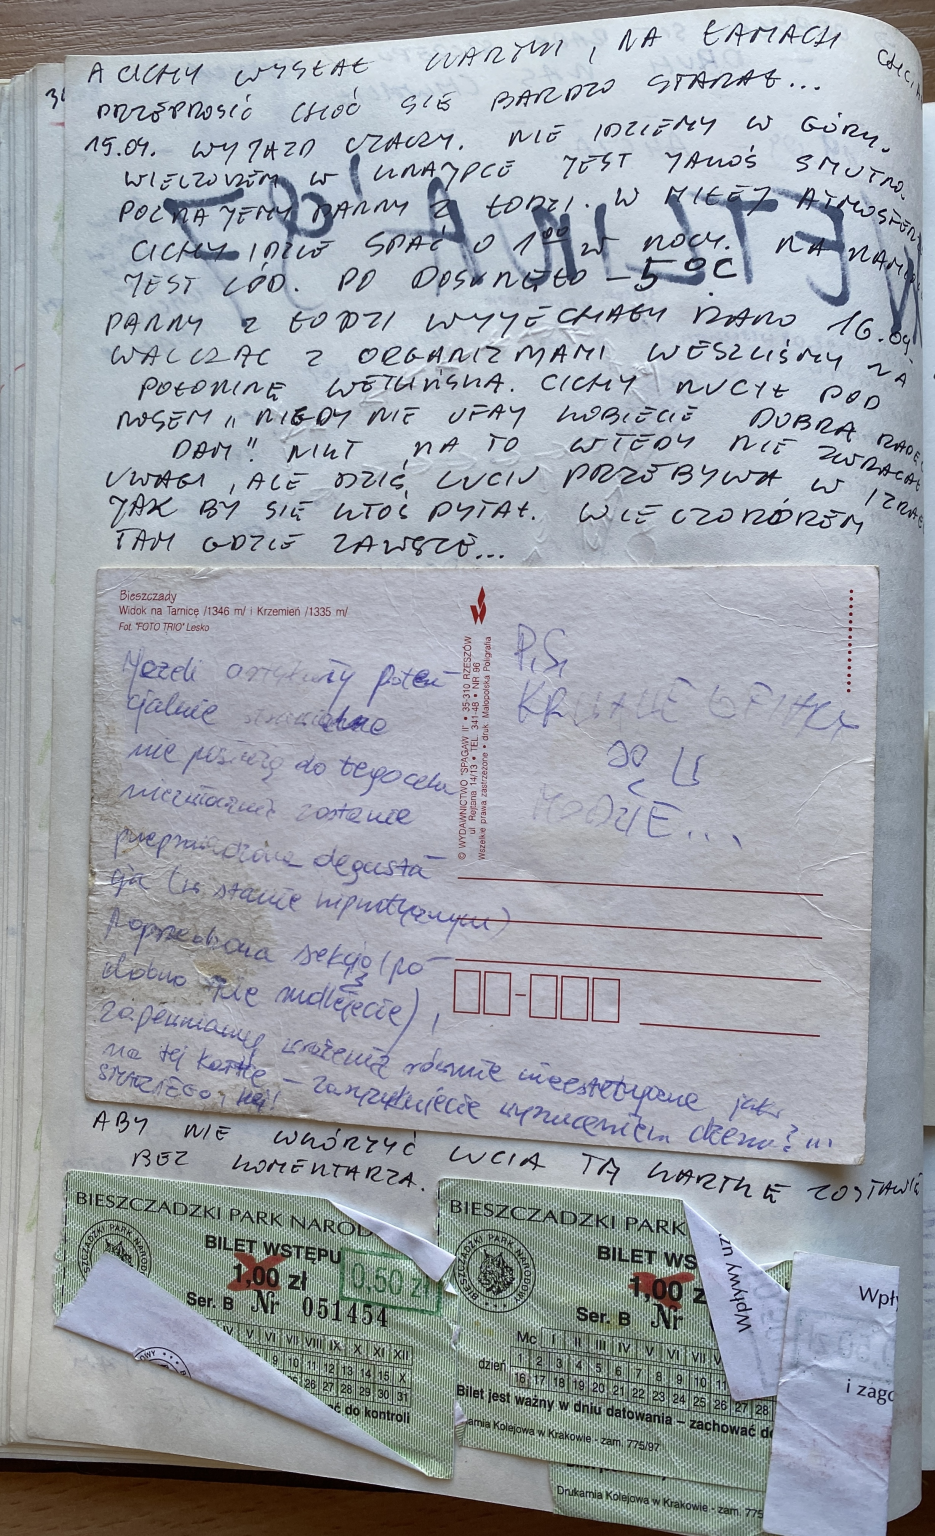 A CICHY WYSŁAŁ KARTKI, NA ŁAMACH
PRZEPROSIĆ CHOĆ SIĘ BARDZO STARAŁ...
15.04. WYJAZD CZACHY. NIE IDZIEMY W GÓRY.
WIECZOREM W KNAJPCE JEST JAKOŚ SMUTNO.
POZNAJEMY PANNY Z ŁODZI. W MIŁEJ ATMOSFERZE
CICHY IDZIE SPAĆ O 1⁰⁰ W NOCY. NA
JEST LÓD. PD -5°C
PANNY Z ŁODZI WYJECHAŁY RANO 16.04
WALCZĄC Z ORGANIZMAMI WESZLIŚMY NA
POŁONINĘ WETLIŃSKĄ. CICHY NUCIŁ POD
NOSEM „NIGDY NIE UFAJ KOBIECIE DOBRĄ RADĘ
DAM". NIKT NA TO WTEDY NIE ZWRACAŁ
UWAGI, ALE DZIŚ LUCIU PRZEBYWA W
JAK BY SIĘ KTOŚ PYTAŁ. WIECZOROREM
TAM GDZIE ZAWSZE...
WETLINA '97
Bieszczady
Widok na Tarnicę /1346 m/ i Krzemień /1335 m/
Fot. "FOTO TRIO" Lesko
Jeżeli artykuły poten-
cjalnie
nie posłużą do tego celu
niezwłocznie zostanie
przeprowadzona degusta-
cja (w stanie hipnotycznym)
Poprzedzona sekcją (po-
dobno nie mdlejecie),
zapewniamy wrażenie równie nieestetyczne jak
na tej kartce –
STARZEGO, hej!
© WYDAWNICTWO "SPAGAW II" • 35-310 RZESZÓW
ul. Rejtana 14/13 • TEL. 341-48 • NR 96
Wszelkie prawa zastrzeżone • druk. Małopolska Poligrafia
P.S.
SĄ W
MODZIE...
ABY NIE WKÓRZYĆ LUCIA TĄ KARTKĘ ZOSTAWIĘ
BEZ KOMENTARZA.
BIESZCZADZKI PARK NAROD
BILET WSTĘPU
1,00 zł
0,50 zł
Ser. B Nr 051454
IV V VI VII VIII IX X XI XII
9 10 11 12 13 14 15 X
26 27 28 29 30 31
ać do kontroli
BIESZCZADZKI PARK
BILET WS
1,00 z
Ser. B Nr
Mc I II III IV V VI VII V
dzień 1 2 3 4 5 6 7 8 9 10 11
16 17 18 19 20 21 22 23 24 25 26 27 28
Bilet jest ważny w dniu datowania – zachować do
arnia Kolejowa w Krakowie - zam. 775/97
Drukarnia Kolejowa w Krakowie - zam. 775
Wpływy uz
Wpły
i zago